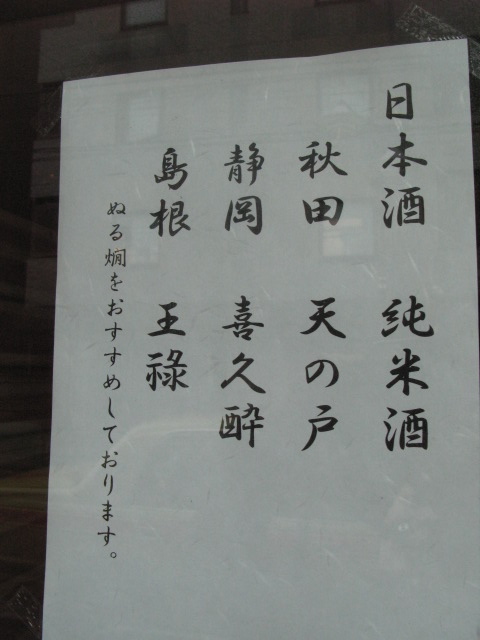 日本酒 純米酒
秋田 天の戸
静岡 喜久酔
島根 王祿
ぬる燗をおすすめしております。